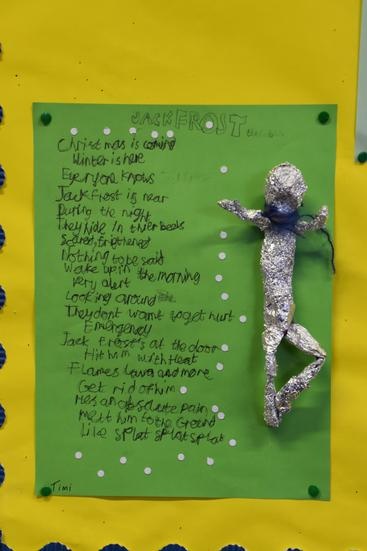 JACK FROST
Christmas is coming
Winter is here
Everyone knows
Jack frost is near
During the night
They hide in thier beds
Scared, frightened
Nothing to be said
Wake up in the morning
Very alert
Looking around
They dont want to get hurt
Emergency
Jack frost's at the door
Hit him with Heat
Flames lava and more
Get rid of him
Hes an absolute pain
melt him to the Ground
Like splat splat splat
Timi